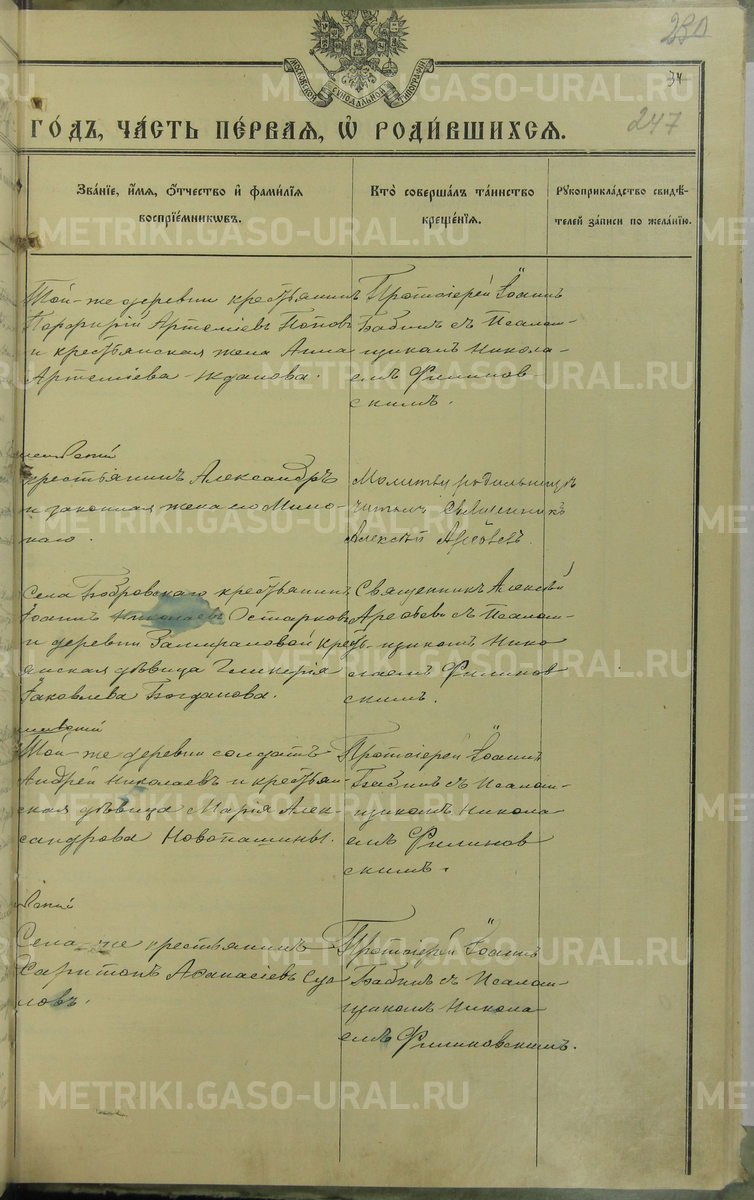 230
34
МОСКОВСКОЙ СѴНОДАЛЬНОЙ ТИПОГРАФІИ
ГОДЪ, ЧАСТЬ ПЕРВАЯ, Ѡ РОДИВШИХСЯ.
247
Званіе, имя, отчество и фамилія воспріемниковъ.
Кто совершалъ таинство крещенія.
Рукоприкладство свидѣтелей записи по желанію.
Той-же деревни крестьянинъ
Порфирій Артеміевъ Поповъ
и крестьянская жена Анна
Артеміева Жданова.
Протоіерей Іоаннъ
Бабинъ съ Псалом-
щикомъ Никола-
емъ Филинов-
скимъ.
крестьянинъ Александръ
и законная жена его
Молитву родильницѣ
читалъ Священникъ
Алексѣй Арефьевъ.
Села Бобровскаго крестьянинъ
Іоаннъ Николаевъ Остарковъ
и деревни крест-
янская дѣвица Гликерія
Іаковлева Богданова.
Священникъ Алексѣй
Арефьевъ съ Псалом-
щикомъ Нико
лаемъ Филинов
скимъ.
Той-же деревни солдатъ
Андрей Николаевъ и крестьян-
ская дѣвица Марія Алек-
сандрова Новопашины.
Протоіерей Іоаннъ
Бабинъ съ Псалом-
щикомъ Никола
емъ Филинов
скимъ.
Села-же крестьянинъ
Харитонъ Аѳанасіевъ Сус
ловъ.
Протоіерей Іоаннъ
Бабинъ съ Псалом-
щикомъ Никола
емъ Филиновскимъ.
METRIKI.GASO-URAL.RU